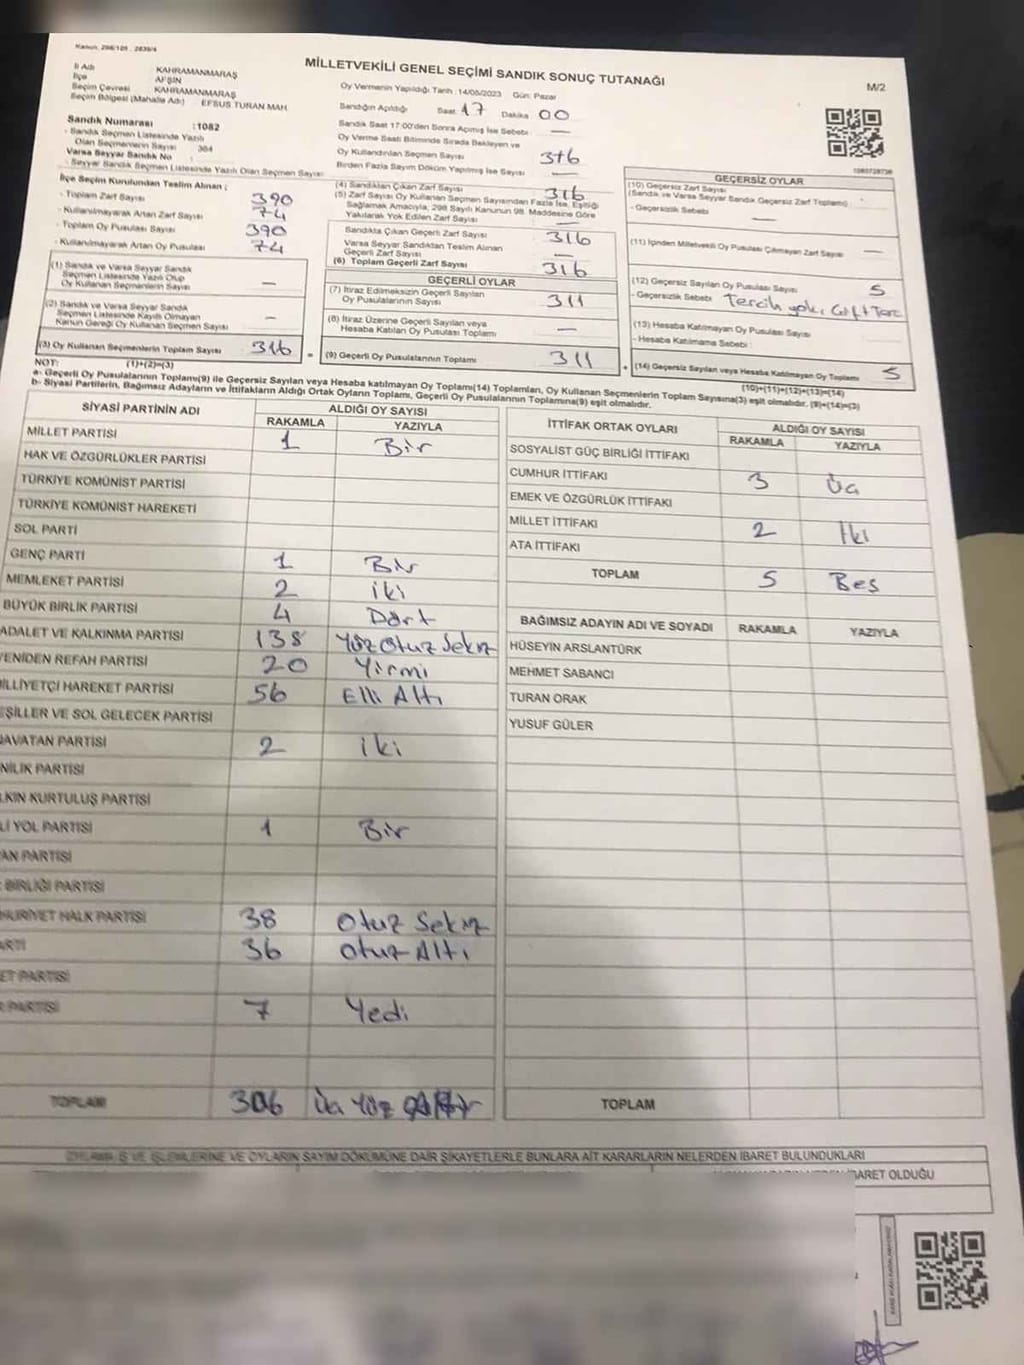 Kanun, 298/105 , 2839/4
MİLLETVEKİLİ GENEL SEÇİMİ SANDIK SONUÇ TUTANAĞI
M/2
İl Adı KAHRAMANMARAŞ
İlçe AFŞİN
Seçim Çevresi KAHRAMANMARAŞ
Seçim Bölgesi (Mahalle Adı) EFSUS TURAN MAH
Sandık Numarası : 1082
- Sandık Seçmen Listesinde Yazılı
Olan Seçmenlerin Sayısı 384
Varsa Seyyar Sandık No :
- Seyyar Sandık Seçmen Listesinde Yazılı Olan Seçmen Sayısı
Oy Vermenin Yapıldığı Tarih :14/05/2023 Gün: Pazar
Sandığın Açıldığı Saat: 17 Dakika 00
Sandık Saat 17:00'den Sonra Açımış İse Sebebi : —
Oy Verme Saati Bitiminde Sırada Bekleyen ve
Oy Kullandırılan Seçmen Sayısı 316
Birden Fazla Sayım Döküm Yapılmış İse Sayısı —
İlçe Seçim Kurulundan Teslim Alınan ;
- Toplam Zarf Sayısı 390
- Kullanılmayarak Artan Zarf Sayısı 74
- Toplam Oy Pusulası Sayısı 390
- Kullanılmayarak Artan Oy Pusulası 74
(1) Sandık ve Varsa Seyyar Sandık
Seçmen Listesinde Yazılı Olup
Oy Kullanan Seçmen Sayısı —
(2) Sandık ve Varsa Seyyar Sandık
Seçmen Listesinde Kayıtlı Olmayan
Kanun Gereği Oy Kullanan Seçmen Sayısı —
(3) Oy Kullanan Seçmenlerin Toplam Sayısı 316
(1)+(2)=(3)
(4) Sandıktan Çıkan Zarf Sayısı 316
(5) Zarf Sayısı Oy Kullanan Seçmen Sayısından Fazla İse, Eşitliği
Sağlamak Amacıyla, 298 Sayılı Kanunun 98. Maddesine Göre
Yakılarak Yok Edilen Zarf Sayısı —
Sandıkta Çıkan Geçerli Zarf Sayısı 316
Varsa Seyyar Sandıktan Teslim Alınan
Geçerli Zarf Sayısı —
(6) Toplam Geçerli Zarf Sayısı 316
GEÇERLİ OYLAR
(7) İtiraz Edilmeksizin Geçerli Sayılan
Oy Pusulalarının Sayısı 311
(8) İtiraz Üzerine Geçerli Sayılan veya
Hesaba Katılan Oy Pusulası Toplamı —
= (9) Geçerli Oy Pusulalarının Toplamı 311
1085728736
GEÇERSİZ OYLAR
(10) Geçersiz Zarf Sayısı
(Sandık ve Varsa Seyyar Sandık Geçersiz Zarf Toplamı) :
- Geçersizlik Sebebi —
(11) İçinden Milletvekili Oy Pusulası Çıkmayan Zarf Sayısı —
(12) Geçersiz Sayılan Oy Pusulası Sayısı 5
- Geçersizlik Sebebi : Tercih yok,
(13) Hesaba Katılmayan Oy Pusulası Sayısı
- Hesaba Katılmama Sebebi :
+ (14) Geçersiz Sayılan veya Hesaba Katılmayan Oy Toplamı 5
(10)+(11)+(12)+(13)=(14)
NOT:
a- Geçerli Oy Pusulalarının Toplamı(9) ile Geçersiz Sayılan veya Hesaba katılmayan Oy Toplamı(14) Toplamları, Oy Kullanan Seçmenlerin Toplam Sayısına(3) eşit olmalıdır. (9)+(14)=(3)
b- Siyasi Partilerin, Bağımsız Adayların ve İttifakların Aldığı Ortak Oyların Toplamı, Geçerli Oy Pusulalarının Toplamına(9) eşit olmalıdır.
SİYASİ PARTİNİN ADI ALDIĞI OY SAYISI
RAKAMLA YAZIYLA
MİLLET PARTİSİ 1 Bir
HAK VE ÖZGÜRLÜKLER PARTİSİ
TÜRKİYE KOMÜNİST PARTİSİ
TÜRKİYE KOMÜNİST HAREKETİ
SOL PARTİ
GENÇ PARTİ 1 Bir
MEMLEKET PARTİSİ 2 iki
BÜYÜK BİRLİK PARTİSİ 4 Dört
ADALET VE KALKINMA PARTİSİ 138 Yüz Otuz Sekiz
YENİDEN REFAH PARTİSİ 20 Yirmi
İLLİYETÇİ HAREKET PARTİSİ 56 Elli Altı
EŞİLLER VE SOL GELECEK PARTİSİ
NAVATAN PARTİSİ 2 iki
NİLİK PARTİSİ
LKIN KURTULUŞ PARTİSİ
Lİ YOL PARTİSİ 1 Bir
AN PARTİSİ
BİRLİĞİ PARTİSİ
HURİYET HALK PARTİSİ 38 Otuz Sekiz
ARTİ 36 Otuz Altı
ET PARTİSİ
PARTİSİ 7 Yedi
TOPLAM 306 Üç Yüz
İTTİFAK ORTAK OYLARI ALDIĞI OY SAYISI
RAKAMLA YAZIYLA
SOSYALİST GÜÇ BİRLİĞİ İTTİFAKI
CUMHUR İTTİFAKI 3 Üç
EMEK VE ÖZGÜRLÜK İTTİFAKI
MİLLET İTTİFAKI 2 İki
ATA İTTİFAKI
TOPLAM 5 Beş
BAĞIMSIZ ADAYIN ADI VE SOYADI RAKAMLA YAZIYLA
HÜSEYİN ARSLANTÜRK
MEHMET SABANCI
TURAN ORAK
YUSUF GÜLER
TOPLAM
İŞ VE İŞLEMLERİNE VE OYLARIN SAYIM DÖKÜMÜNE DAİR ŞİKAYETLERLE BUNLARA AİT KARARLARIN NELERDEN İBARET BULUNDUKLARI
İBARET OLDUĞU